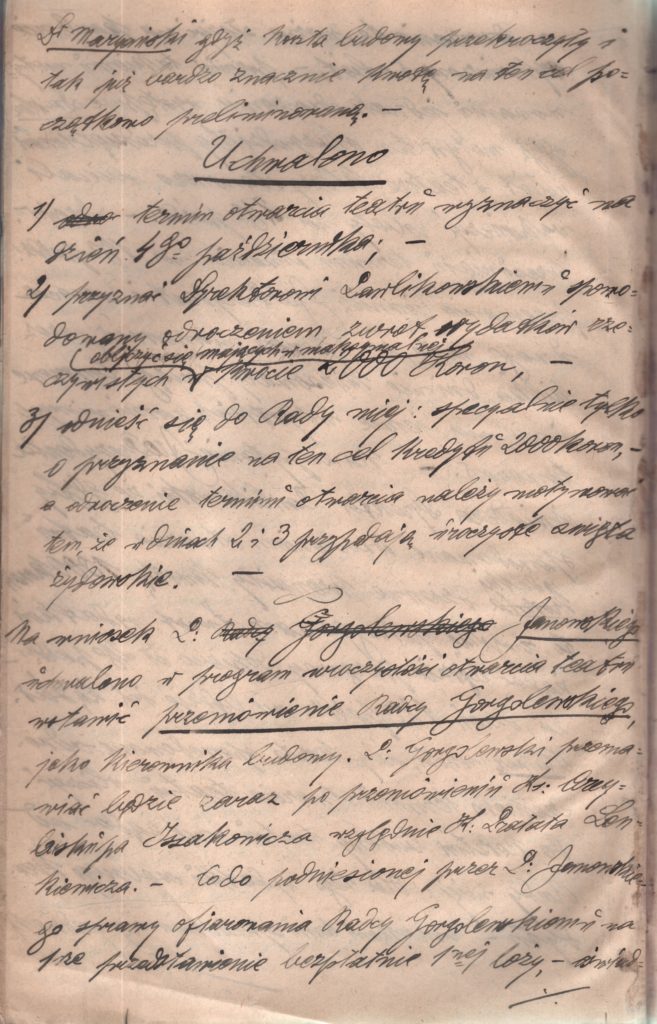 Dr Maryański gdyż koszta budowy przekroczyły i
tak już bardzo znacznie kwotę na ten cel po=
czątkowo preliminowaną. —
Uchwalono
1) termin otwarcia teatru wyznaczyć na
dzień 4go października; —
2) przyznać Dyrektorowi Pawlikowskiemu spowo=
dowany odroczeniem zwrot wydatków rze=
obliczyć się mających w maksymalnej
czywistych w kwocie 2000 Koron, —
3) odnieść się do Rady miej: specyalnie tylko
o przyznanie na ten cel kredytu 2000 koron, —
a odroczenie terminu otwarcia należy motywować
tem, że w dniach 2 i 3 przypadają uroczyste święta
żydowskie. —
Na wniosek P. Radcy Gorgolewskiego Janowskiego
uchwalono w program uroczystości otwarcia teatru
wstawić przemówienie Radcy Gorgolewskiego,
jako kierownika budowy. P. Gorgolewski przema=
wiać będzie zaraz po przemówieniu Ks: Arcy=
biskupa Issakowicza względnie X. Prałata Len=
kiewicza. — Co do podniesionej przez P. Janowskie=
go sprawy ofiarowania Radcy Gorgolewskiemu na
1sze przedstawienie bezpłatnie 1nej loży, —